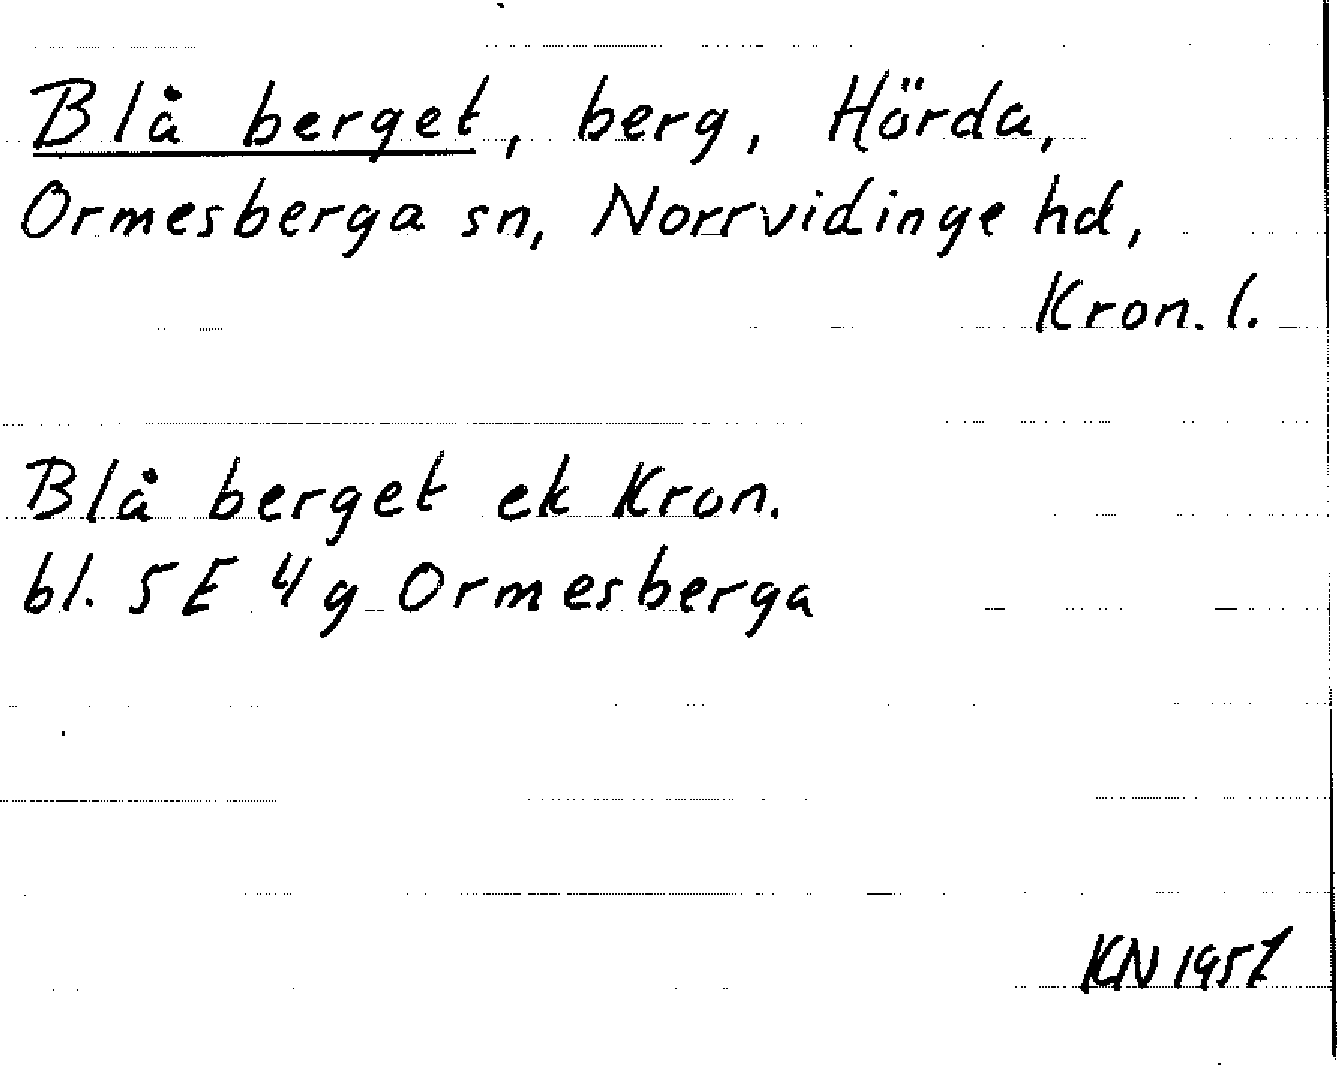 Blå berget, berg, Hörda,
Ormesberga sn, Norrvidinge hd,
Kron. l.
Blå berget ek Kron.
bl. 5E 4g Ormesberga
KN 1957